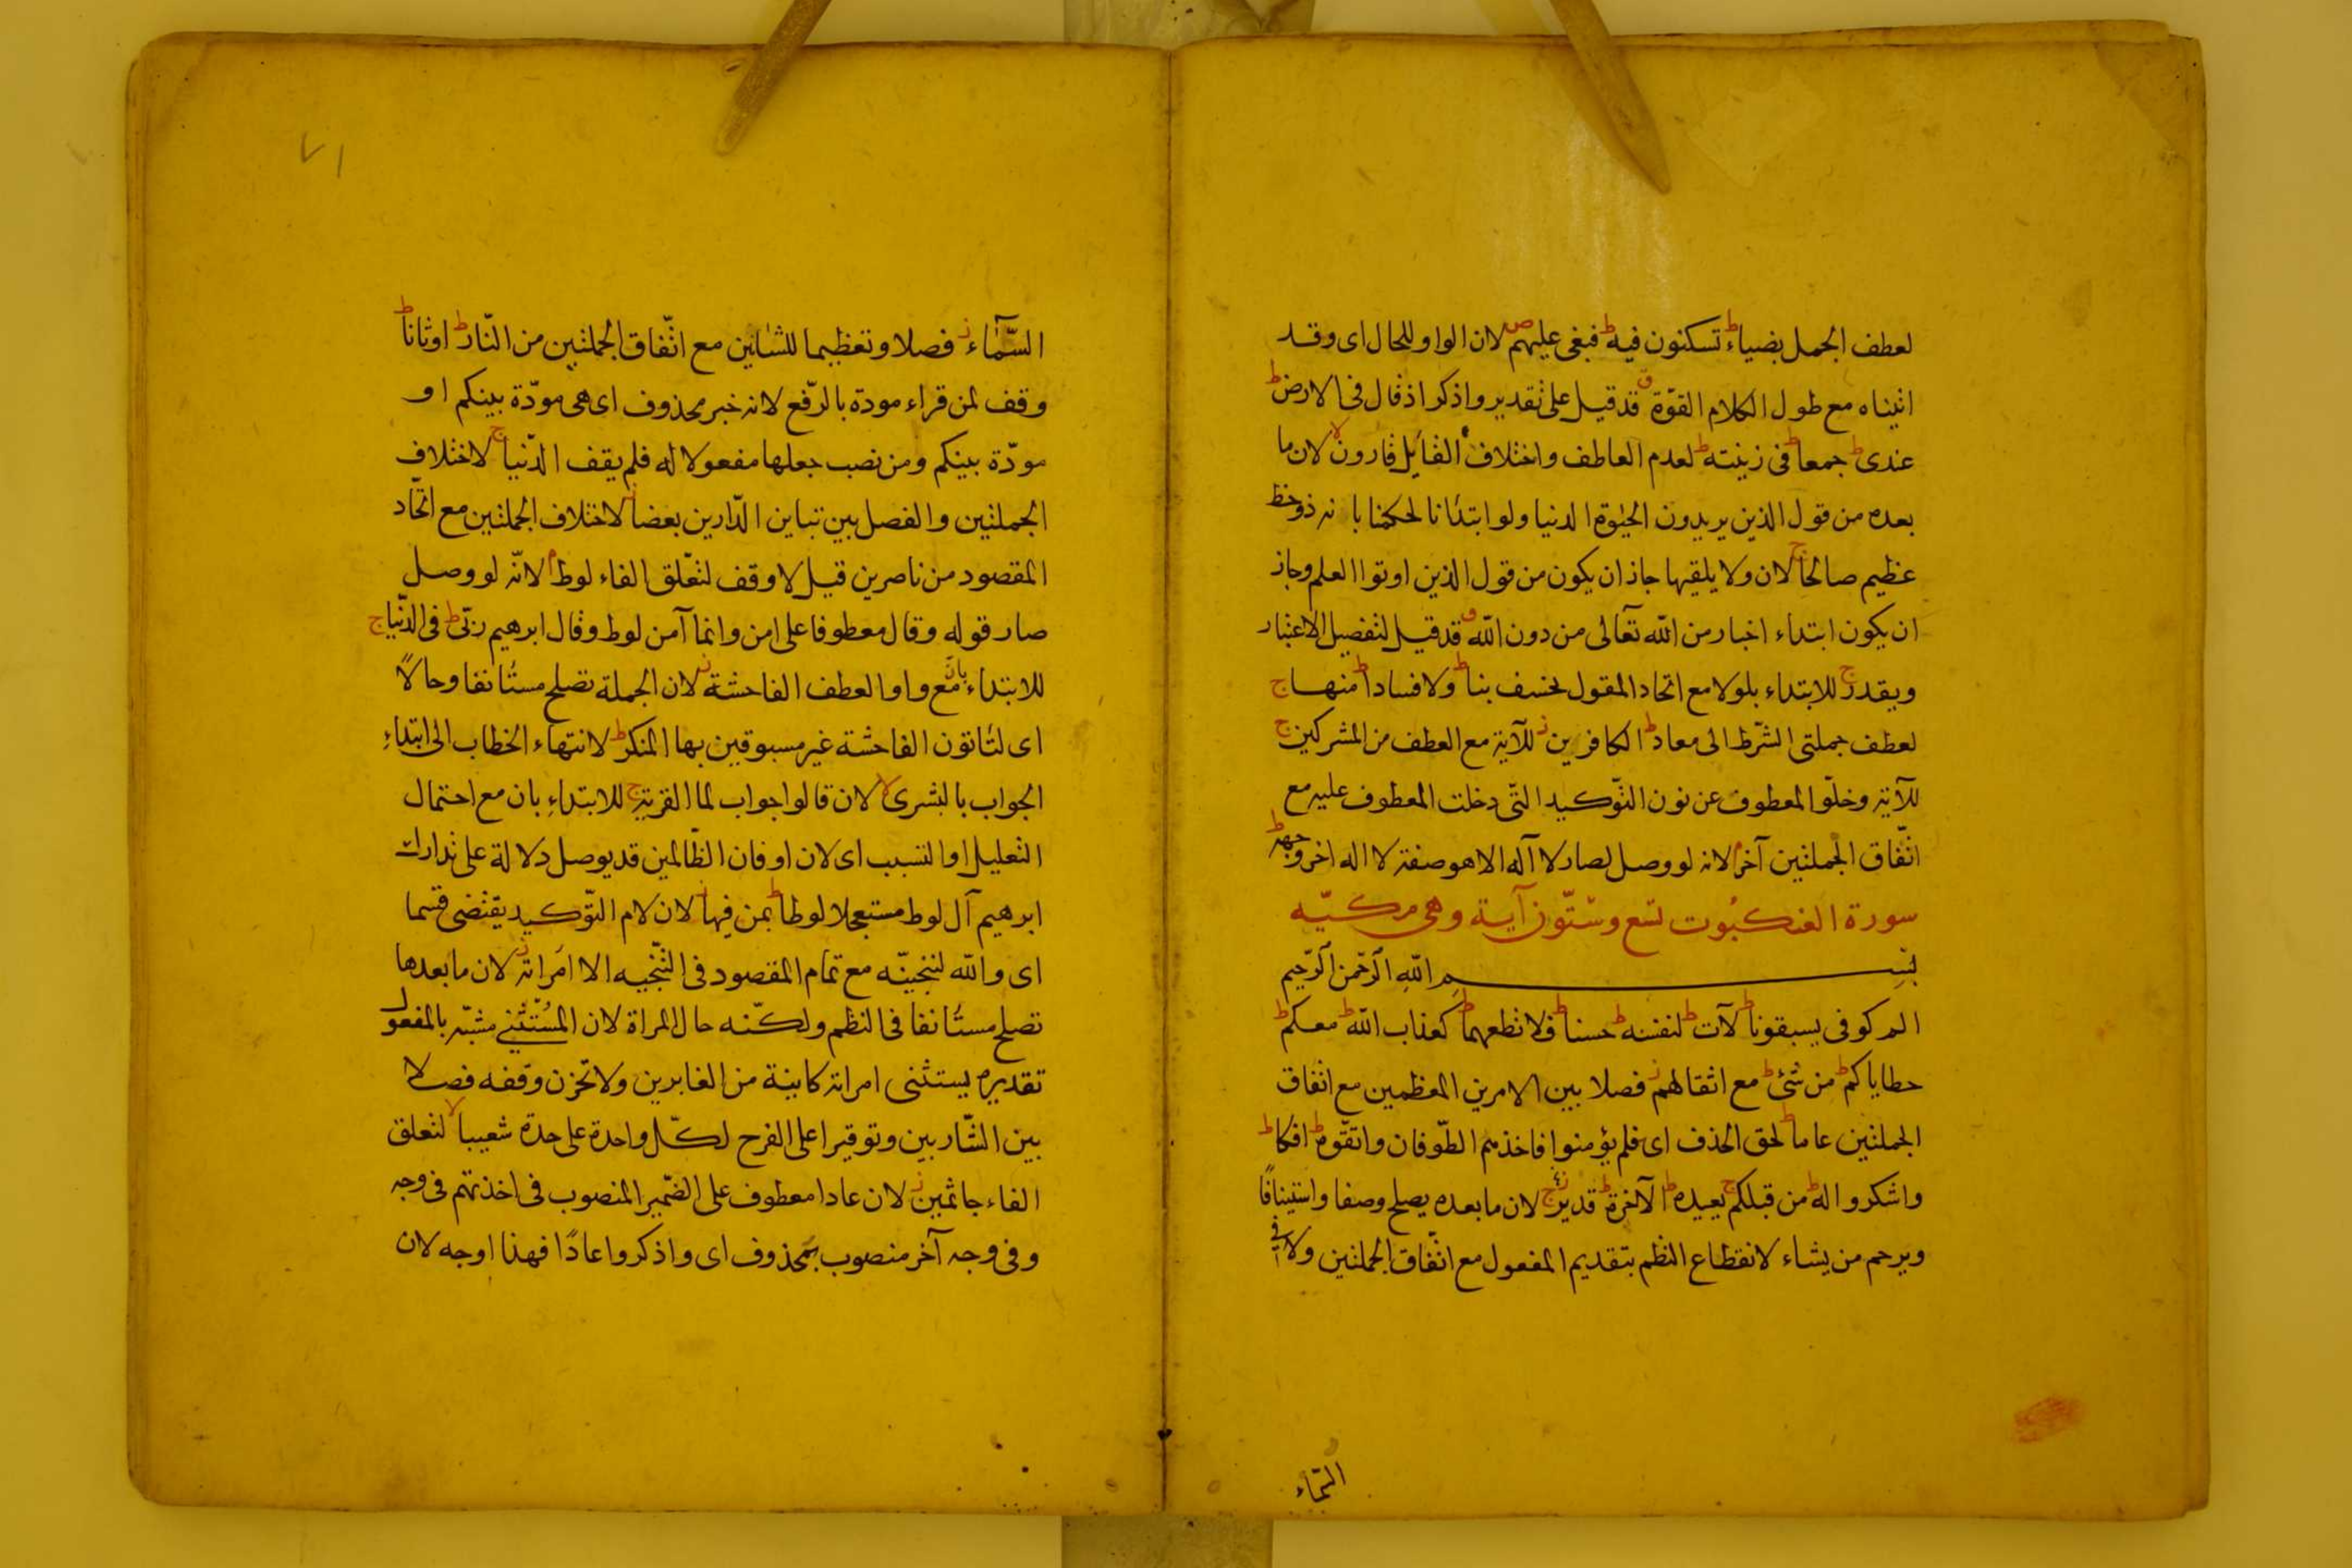 لعطف الجمل بضياء ط تسكنون فيه ط فبغى عليهم ص لان الواو للحال اى وقد
اتيناه مع طول الكلام القوّة ق قد قيل على تقدير واذكر اذ قال فى الارض ط
عندى ط جمعا ط فى زينته ط لعدم العاطف واختلاف القايل قارون لا لان ما
بعده من قول الذين يريدون الحيوة الدنيا ولو ابتدانا لحكمنا بانه ذو حظ
عظيم صالحا ج لان ولا يلقيها جاز ان يكون من قول الذين اوتوا العلم وجاز
ان يكون ابتداء اخبار من الله تعالى من دون الله ق قد قيل لتفصيل الاعتبار
ويقدر ج للابتداء بلولا مع اتحاد المقول لخسف بنا ط ولا فسادا ط منها ج
لعطف جملتى الشّرط الى معاد ط الكافرين ز للآية مع العطف من المشركين ج
للآية وخلوّ المعطوف عن نون التوّكيد التّى دخلت المعطوف عليه مع
اتّفاق الجملتين آخر م لانه لو وصل لصار لا آله الا هو صفة لا اله اخر وجهه ط
سورة العنكبوت تسع وستّون آية وهى مكيّه
بسم الله الرّحمن الرّحيم
الم كوفى يسبقونا ط لآت ط لنفسه ط حسنا ط فلا تطعهما ط كعذاب الله ط معكم ط
خطاياكم ط من شئ ط مع اثقالهم ز فصلا بين الامرين المعظمين مع اتفاق
الجملتين عاما ط لحق الحذف اى فلم يؤمنوا فاخذهم الطّوفان واتقّوه ط افكا ط
واشكروا له ط من قبلكم ج يعيده ط الآخرة ط قدير ج لان ما بعده يصلح وصفا واستينافًا
ويرحم من يشاء لانقطاع النظم بتقديم المفعول مع اتّفاق الجملتين ولا فى
السّماء
٧١
السّمآء ز فصلا وتعظيما للشانين مع اتّفاق الجملتين من النّار ط اوثانا ط
وقف لمن قراء مودة بالرّفع لانه خبر محذوف اى هى مودّة بينكم او
مودّة بينكم ومن نصب جعلها مفعولا له فلم يقف الدّنيا ج لاختلاف
الجملتين والفصل بين تباين الدّارين بعضا ز لاختلاف الجملتين مع اتّحاد
المقصود من ناصرين قيل لا وقف لتعّلق الفاء لوط م لانّه لو وصل
صار قوله وقال معطوفا على امن وانما آمن لوط وقال ابرهيم ربّى ط فى الدّنيا ج
للابتداء بانّ مع واو العطف الفاحشة ز لان الجملة تصلح مستانفا وحالاً
اى لتاتون الفاحشة غير مسبوقين بها المنكر ط لانتهاء الخطاب الى ابتداء
الجواب بالبشرى لا لان قالوا جواب لما القرية ج للابتداء بان مع احتمال
التعليل او التسبب اى لان او فان الظّالمين قد يوصل دلالة على تدارك
ابرهيم آل لوط مستعجلا لوطا ط بمن فيها ز لان لام التوّكيد يقتضى قسما
اى والله لننجينّه مع تمام المقصود فى التّنجيه الا امراته ز لان ما بعدها
تصلح مستانفا فى النظم ولكنّه حال المراة لان المستثنى مشبّه بالمفعول
تقديره يستثنى امراته كاينة من الغابرين ولا تحزن وقفه فصلا
بين البشّاربين وتوقيرا على الفرح لكلّ واحدة على حدة شعيبا لا لتعلق
الفاء جاثمين ز لان عادا معطوف على الضّمير المنصوب فى اخذتهم فى وجه
وفى وجه آخر منصوب بمحذوف اى واذكروا عادًا فهذا اوجه لان